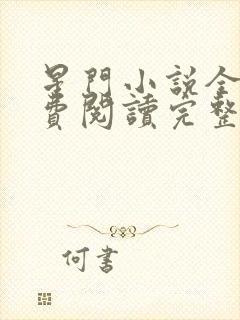 星門小說全
費閱讀完整
何書